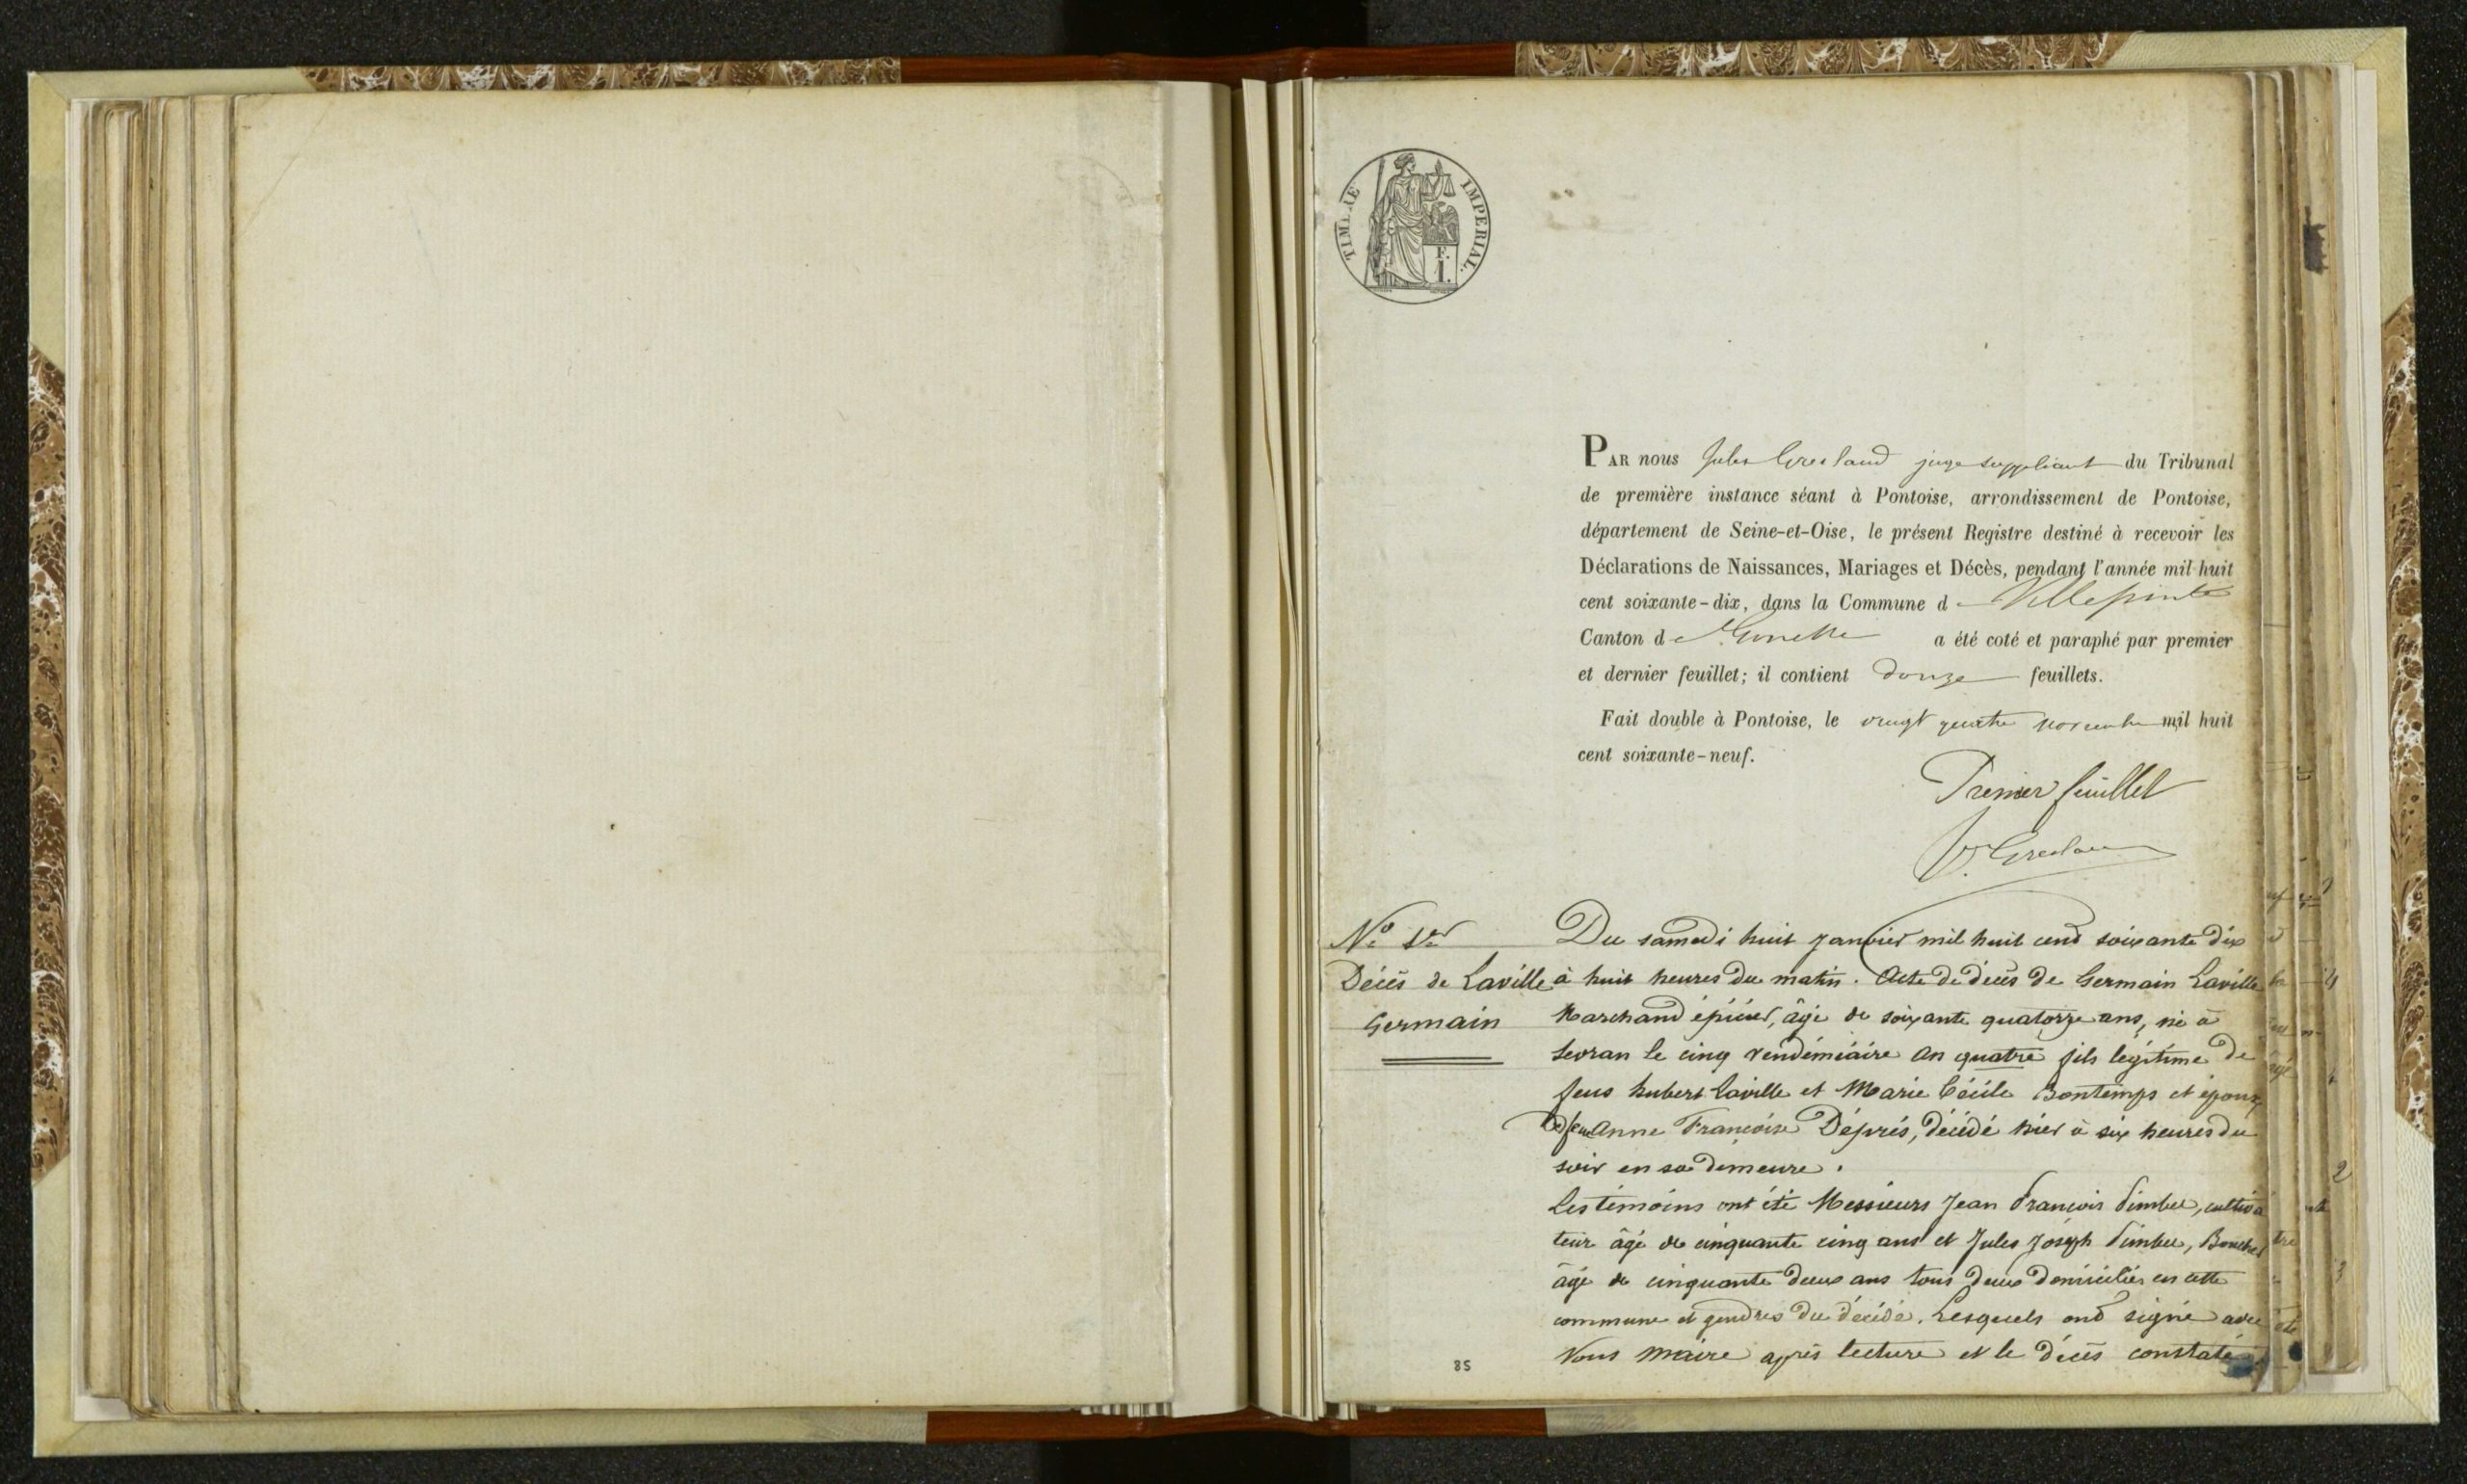 TIMBRE IMPERIAL.
F.
1.
PAR nous Jules Greslaud juge suppléant du Tribunal
de première instance séant à Pontoise, arrondissement de Pontoise,
département de Seine-et-Oise, le présent Registre destiné à recevoir les
Déclarations de Naissances, Mariages et Décès, pendant l'année mil huit
cent soixante-dix, dans la Commune de Villepinte
Canton de Gonesse a été coté et paraphé par premier
et dernier feuillet; il contient douze feuillets.
Fait double à Pontoise, le vingt quatre novembre mil huit
cent soixante-neuf.
Premier feuillet
N° 1er
Décès de Laville
Germain
Du samedi huit janvier mil huit cent soixante dix
à huit heures du matin. Acte de décès de Germain Laville
Marchand épicier, âgé de soixante quatorze ans, né à
Sevran le cinq vendémiaire an quatre fils légitime de
feus hubert Laville et Marie Cécile Bontemps et époux
de feue Anne Françoise Déprés, décédé hier à six heures du
soir en sa demeure.
Les témoins ont été Messieurs Jean François Pimbet, cultiva
teur âgé de cinquante cinq ans et Jules Joseph Boucher
âgé de cinquante deux ans tous deux domiciliés en cette
commune et gendres du décédé. Lesquels ont signé avec
Nous Maire après lecture et le décès constaté
85